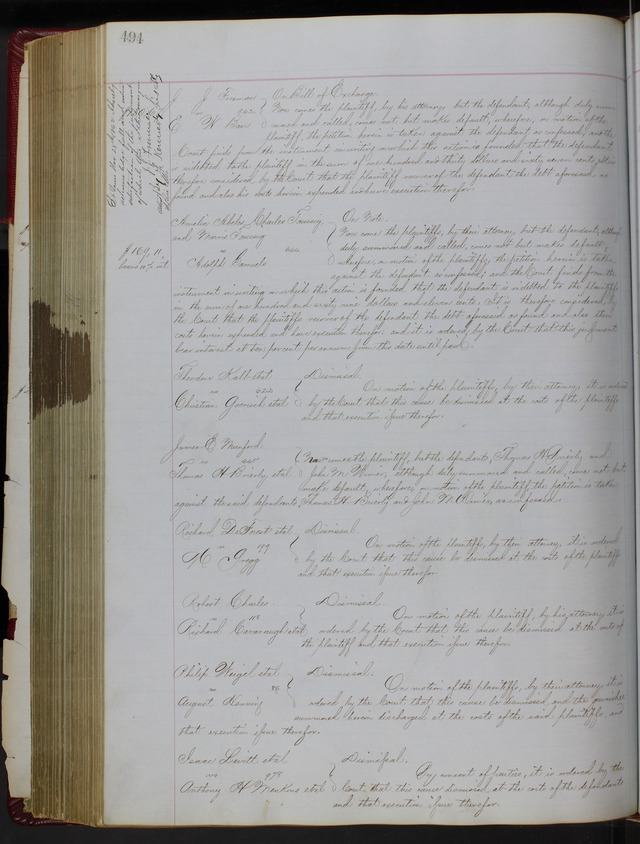 494
J. J. Freeman
vs 942
E. W. Barr
On Bill of Exchange
Now comes the plaintiff, by his attorney but the defendant, although duly
and called, comes not but makes default, wherefore, on motion of the
plaintiff, the petition herein is taken against the defendant as confessed; and the
Court finds from the instrument in writing on which the action is founded that the defendant
is indebted to the plaintiff in the sum of one hundred and thirty dollars and sixty seven cents, it is
therefore considered by the Court that the plaintiff recover of the defendant the debt aforesaid as
found and also his costs herein expended and have execution therefor.
Charles Fanning
and Morris Fanning
vs
Adolph Samuels
On Note.
Now come the plaintiffs, by their attorney, but the defendant, although
duly summoned and called, comes not but makes default,
wherefore, on motion of the plaintiffs, the petition herein is taken
against the defendant as confessed; and the Court finds from the
instrument in writing on which this action is founded that the defendant is indebted to the plaintiffs
in the sum of one hundred and sixty nine dollars and eleven cents. It is therefore considered by
the Court that the plaintiffs recover of the defendant the debt aforesaid as found and also their
costs herein expended and have execution therefor; and it is ordered by the Court that this judgment
bear interest at ten per cent per annum from this date until paid.
$169.11
bears 10% int.
Theodore Kalb et al
vs
Christian et al
Dismissal.
On motion of the plaintiffs, by their attorney, it is ordered
by the Court that this cause be dismissed at the costs of the plaintiffs
and that execution issue therefor.
James E. Munford
vs
Thomas H Brierly et al
Now comes the plaintiff, but the defendants, Thomas H Brierly and
John M. although duly summoned and called, come not but
make default; wherefore, on motion of the plaintiff, the petition is taken
against the said defendants, Thomas H. Brierly and John M. as confessed
Richard et al
vs 99
Gregg
Dismissal.
On motion of the plaintiffs, by their attorney, it is ordered
by the Court that this cause be dismissed at the costs of the plaintiffs
and that execution issue therefor.
Robert Charles
vs
Richard Cavanaugh et al
Dismissal.
On motion of the plaintiff, by his attorney, it is
ordered by the Court that this cause be dismissed at the costs of
the plaintiff and that execution issue therefor.
Philip Weigel et al
vs
August
Dismissal.
On motion of the plaintiffs, by their attorney, it is
ordered by the Court that this cause be dismissed and the garnishee
summoned herein discharged at the costs of the said plaintiffs, and
that execution issue therefor.
Isaac Levitt et al
vs 978
Anthony H et al
Dismissal.
By consent of parties, it is ordered by the
Court that this cause dismissed at the costs of the defendants
and that execution issue therefor.